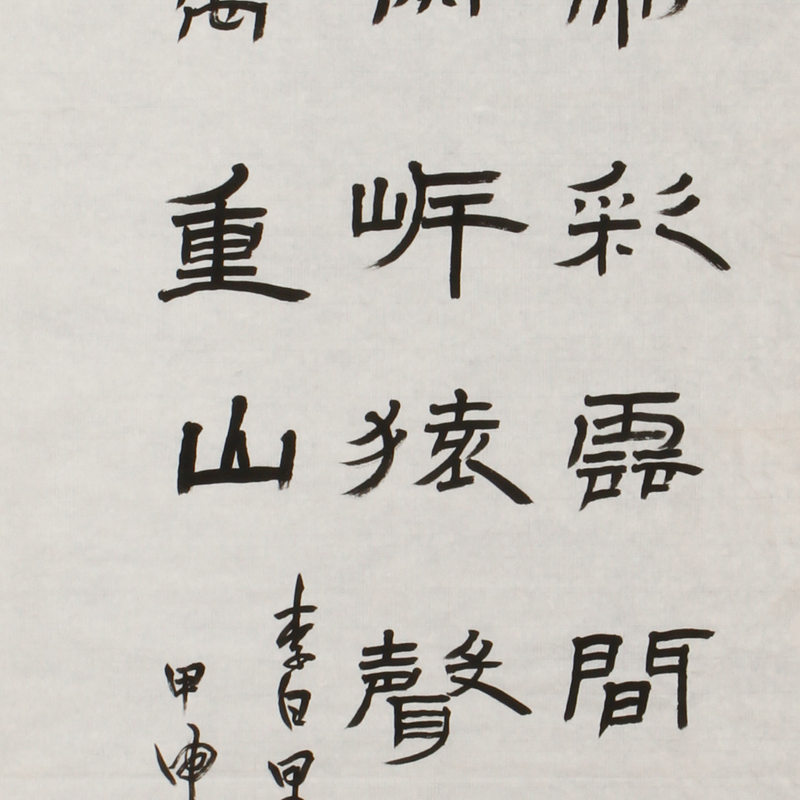 彩雲間
岸猿聲
重山
李白早
甲申